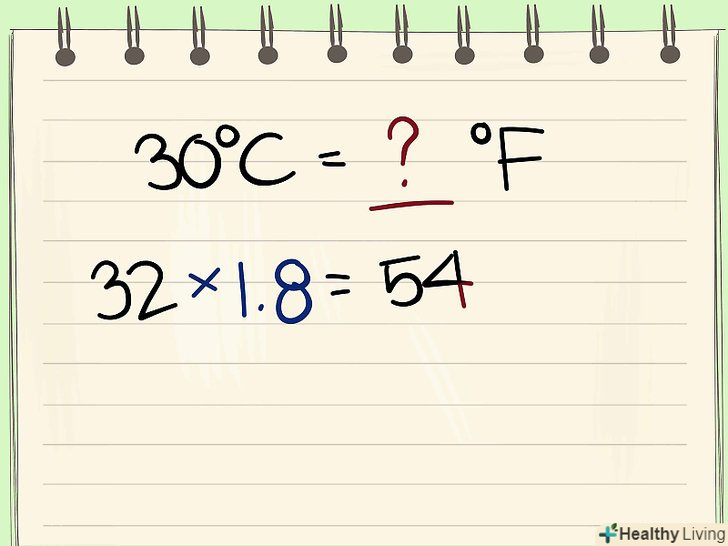 30°C = ? °F
32 × 1.8 = 54
Healthy Living